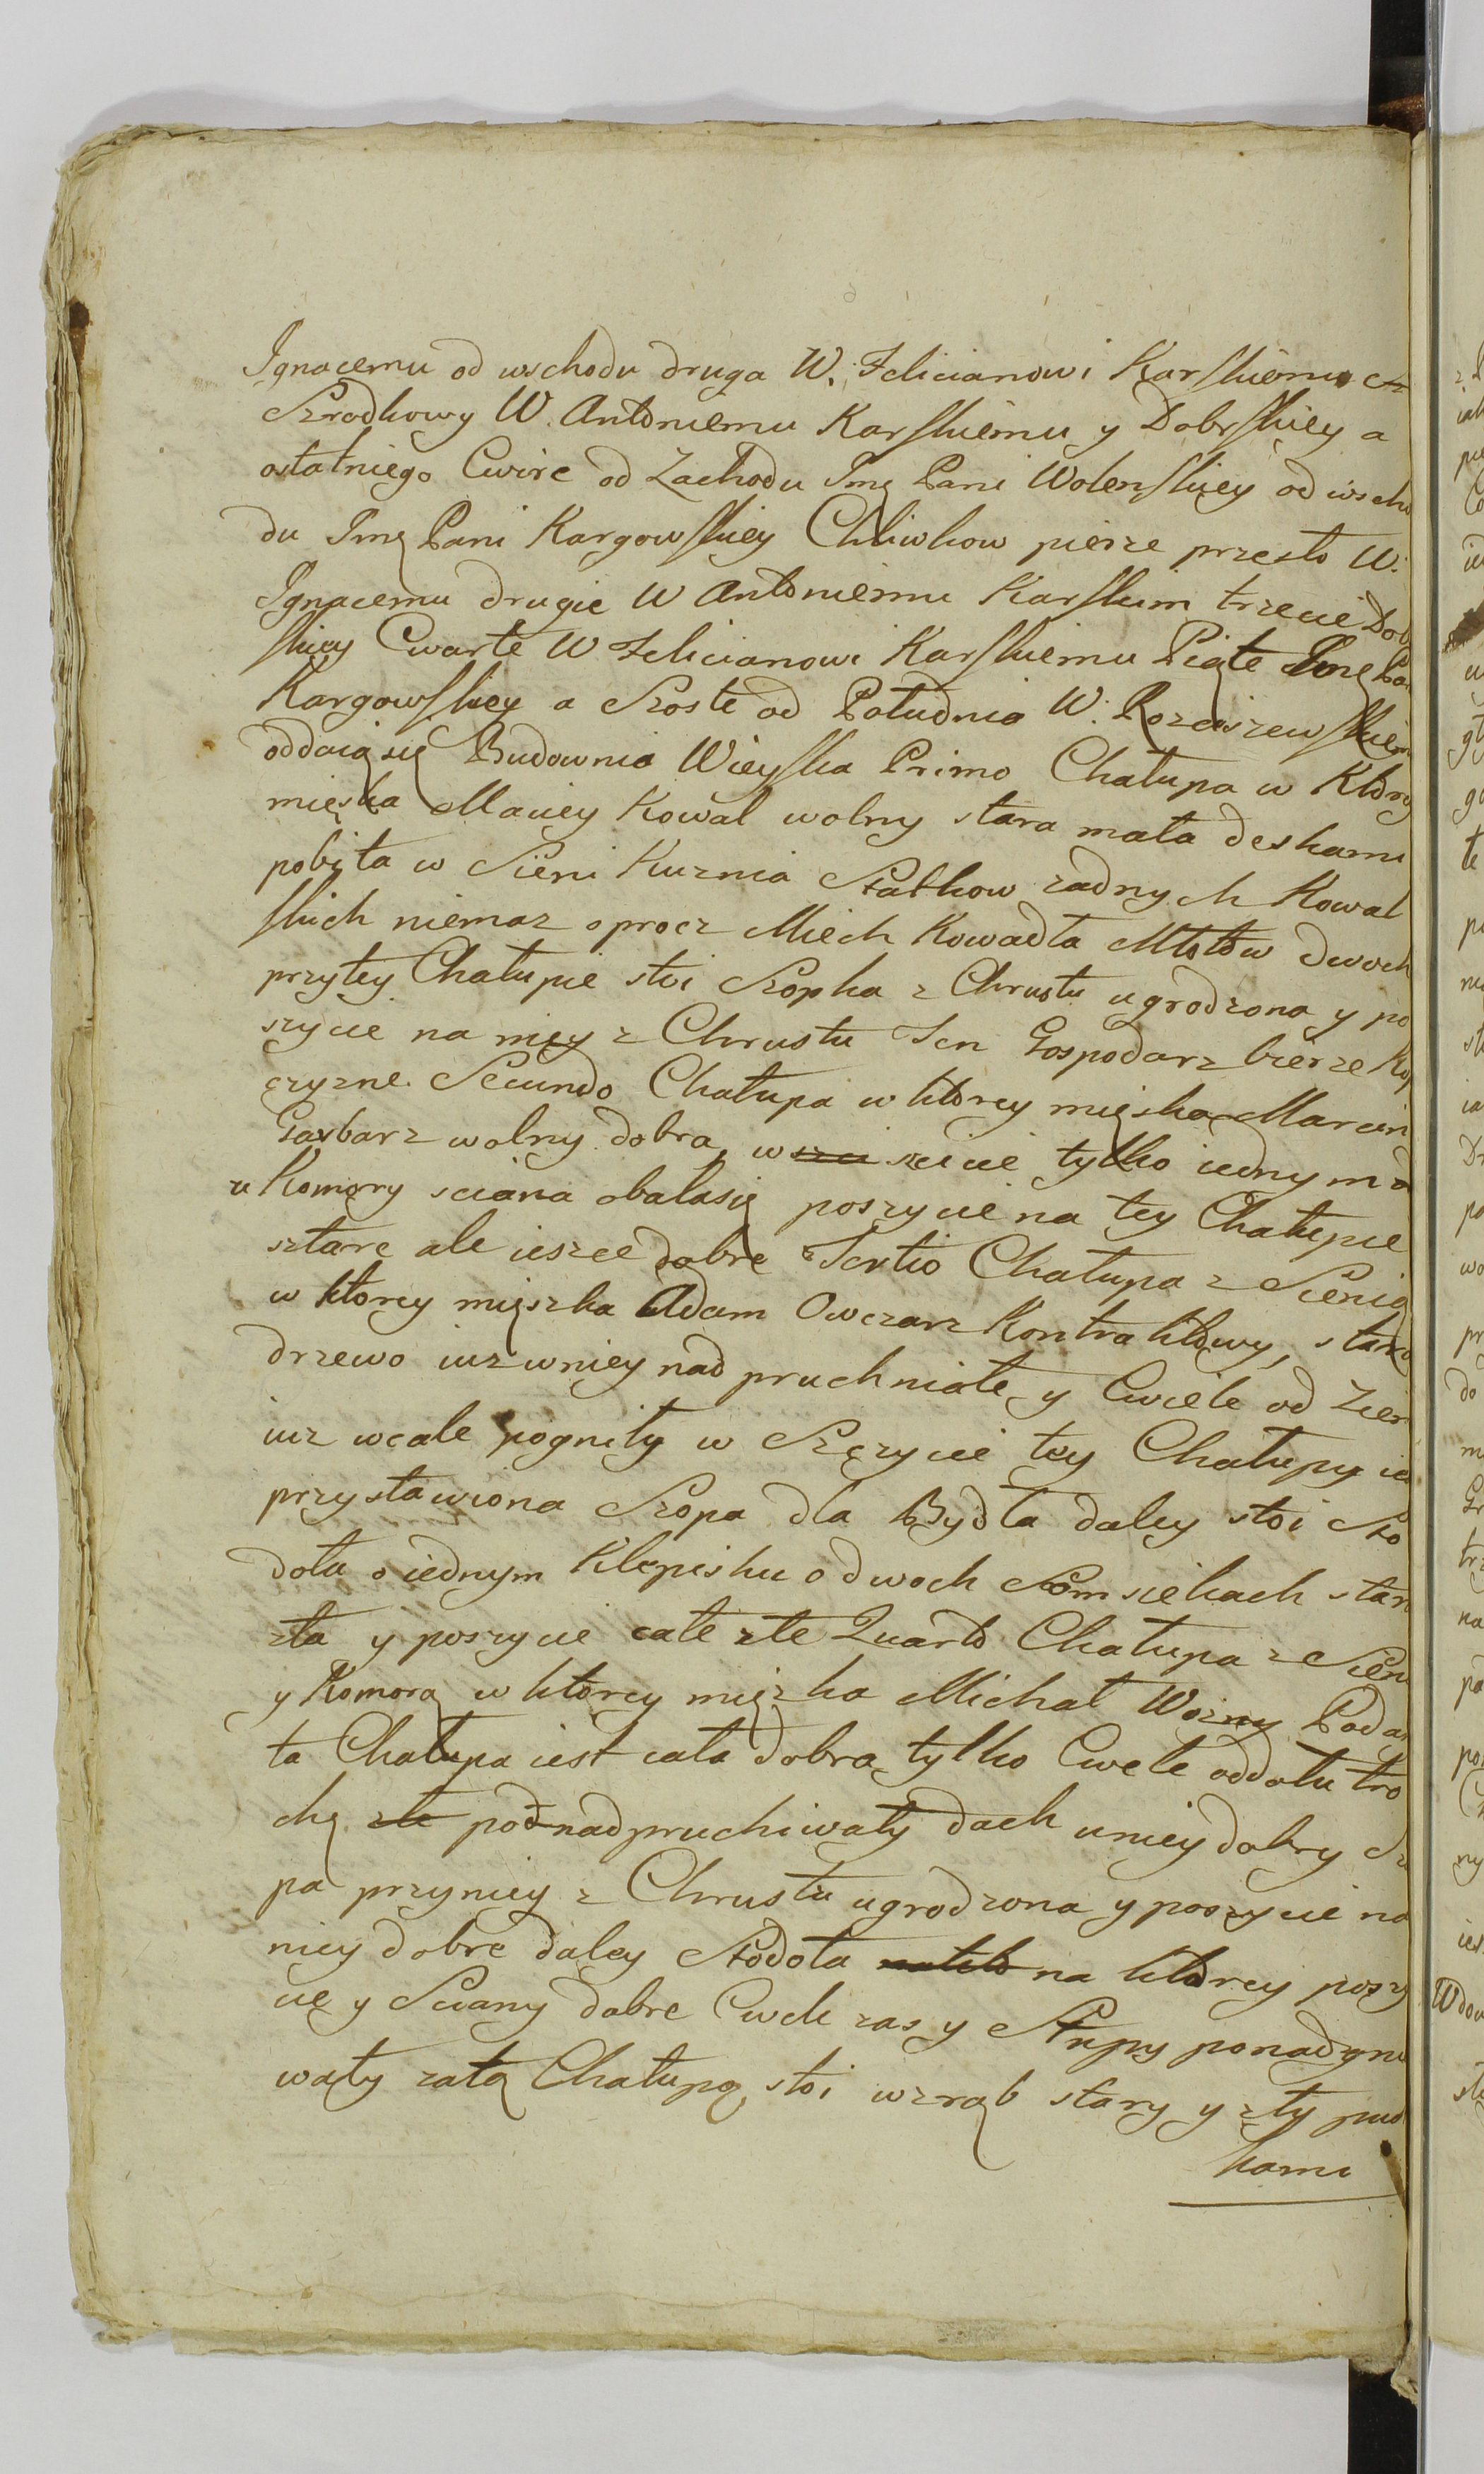 Ignacemu od wschodu druga W. Felicianowi Karskiemu a
Szrodkowy W. Antoniemu Karskiemu y Dobrskiey a
ostatniego Cwirc od Zachodu Jmę Pani Wolenskiey od wscho
du Jmę Pani Kargowskiey Chliwkow pierze przesło W.
Ignacemu drugie W Antoniemu Karskim trzecie Dob
skiey Cwarte W Felicianowi Karskiemu Piąte Jmę Pa
Kargowskiey a Szoste od Południa W. Rozciszewskiem
oddaią się Budownia Wieyska Primo Chałupa w Ktory
mięska Maciey Kowal wolny stara mała deskami
pobita w Sieni Kuznia Statkow zadnych Kowal
skich niemasz oprocz Miech Kowadła Młotow dwoch
przytey Chałupie stoi Szopka z Chrustu ugrodzona y po
szycie na niey z Chrustu Ten Gospodarz bierze
czyzne. Secundo Chałupa w ktorey mięska Marcin
Garbarz wolny dobra, w scicie tylko iednym a
u Komory sciana obalasię poszycie na tey Chałupie
stare ale ieszce dobre Tertio Chałupa z Sienią
w ktorey mięszka Adam Owczarz Kontraktowy, stara
drzewo iuz wniey nad pruchniałe y Cwiele od Ziem
iuz wcale pogniły w Szczycie tey Chałupy ie
przystawiona Szopa dla Bydła daley stoi Sto
doła o iednym Klepisku o dwoch Somsiekach star
zła y poszycie całe złe Quarto Chałupa z Sieni
y Komorą w ktorey mięzka Michał Wozny Podda
ta Chałupa iest cała dobra tylko Cwele oddołu tro
chę złe podnadpruchiwały dach uniey dobry Szo
pa przyniey z Chrustu ugrodzona y poszycie na
niey dobre daley Stodoła na ktorey poszy
cie y Sciany dobre Cwele zas y Słupy ponadgni
wały zatą Chałupą stoi wzrąb stary y zły pust
kami